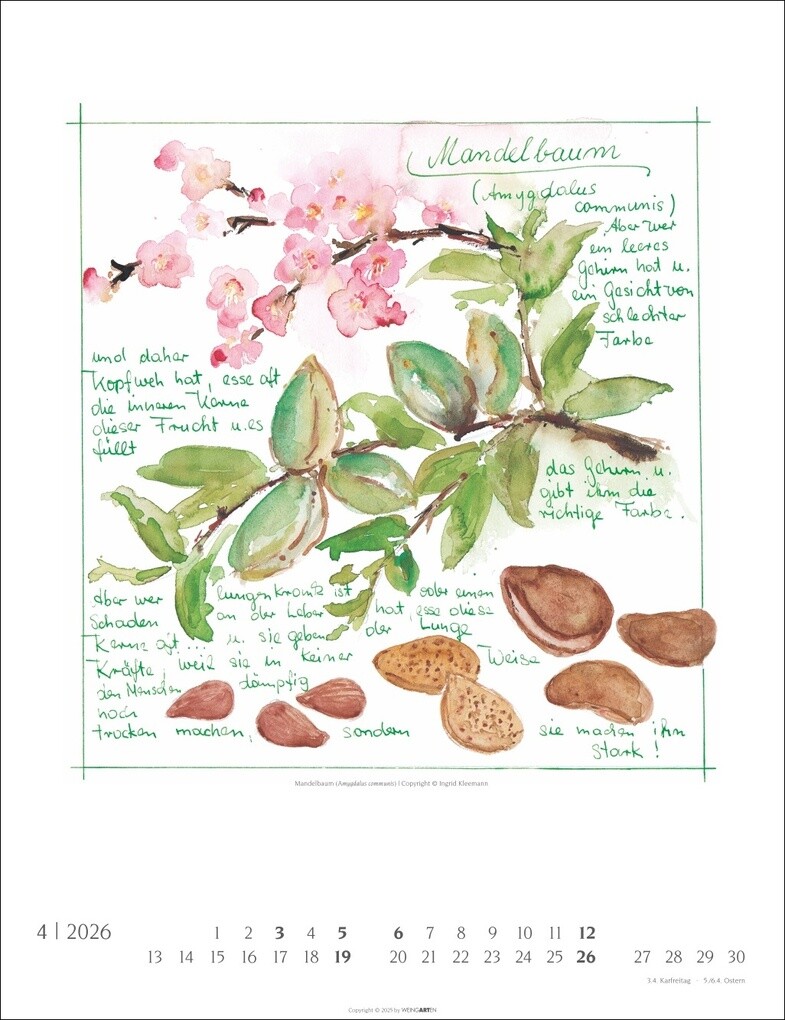 Mandelbaum
(Amygdalus
communis)
Aber wer
ein leeres
Gehirn hat u.
ein Gesicht von
schlechter
Farbe
und daher
Kopfweh hat, esse oft
die inneren Kerne
dieser Frucht u. es
füllt
das Gehirn u.
gibt ihm die
richtige Farbe.
Aber wer lungenkrank ist oder einen
Schaden an der Leber hat, esse diese
Kerne oft... u. sie geben der Lunge
Kräfte, weil sie in keiner Weise
den Menschen dämpfig
noch
trocken machen, sondern sie machen ihn
stark!
Mandelbaum (Amygdalus communis) | Copyright © Ingrid Kleemann
4 | 2026
1 2 3 4 5 6 7 8 9 10 11 12
13 14 15 16 17 18 19 20 21 22 23 24 25 26 27 28 29 30
3.4. Karfreitag · 5./6.4. Ostern
Copyright © 2025 by WEINGARTEN